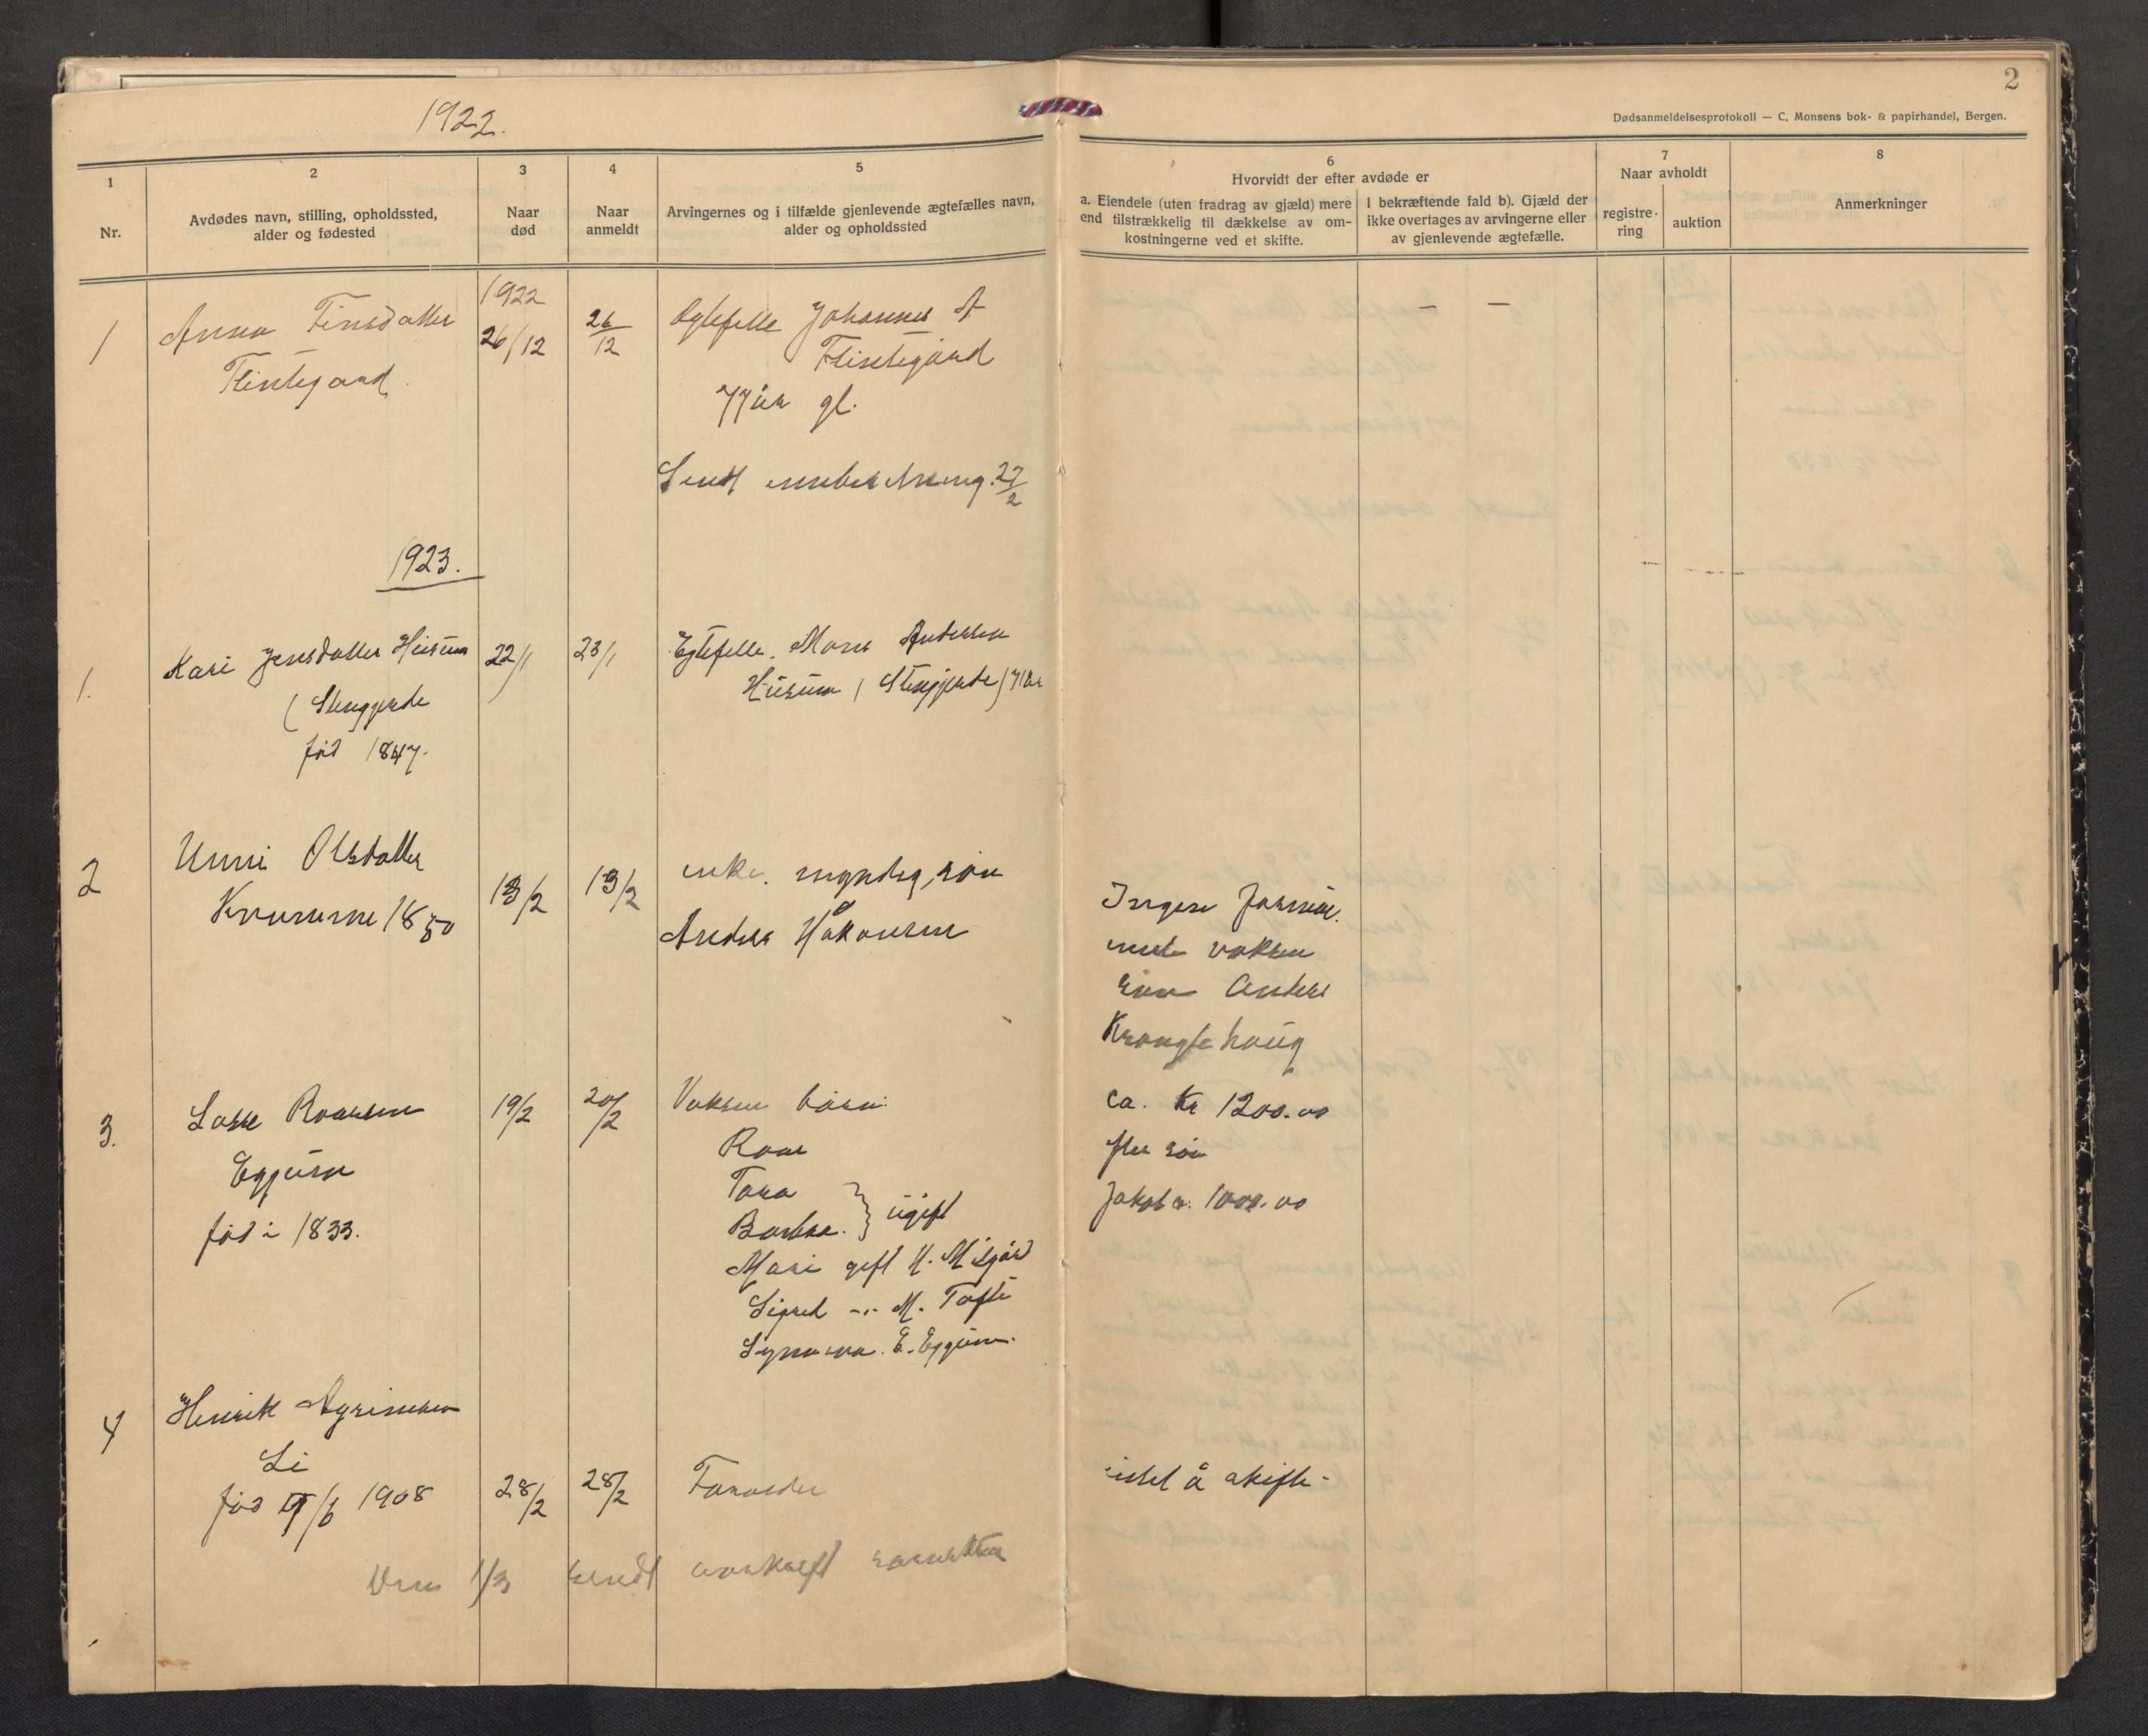 2
Dødsanmeldelsesprotokoll — C. Monsens bok- & papirhandel, Bergen.
1922.
1
Nr.
2
Avdødes navn, stilling, opholdssted,
alder og fødested
3
Naar
død
4
Naar
anmeldt
5
Arvingernes og i tilfælde gjenlevende ægtefælles navn,
alder og opholdssted
6
Hvorvidt der efter avdøde er
a. Eiendele (uten fradrag av gjæld) mere
end tilstrækkelig til dækkelse av om-
kostningerne ved et skifte.
I bekræftende fald b). Gjæld der
ikke overtages av arvingerne eller
av gjenlevende ægtefælle.
7
Naar avholdt
registre-
ring
auktion
8
Anmerkninger
1
Anna
1922
26/12
26/12
Johannes A
77 år gl.
Sendt 27/2
— —
1923.
1.
Kari Jensdatter Husum
(Stenggjerde
fød 1847.
22/1
23/1
Egtefelle. Mons Andersen
Husum (Stenggjerde) 71 år
2
Unni Olsdatter
1850
13/2
13/2
enke. myndig søn
Anders Håkonsen
Ingen formue.
voksen
søn Anders
Kraugshaug
3.
Lasse Roarsen
Eggum
fød i 1833.
19/2
20/2
Voksne børn:
Roar
Tora
Barbra. } ugift
Mari gift H. Midgård
Sigrid -"- M. Tofte
Synneva. E. Eggum.
ca. kr 1200.00
søn
Jakob 1000.00
4
Henrik
Li
fød /6 1908
28/2
28/2
Foreldre
intet å skifte -
1/3 sendt avskrift